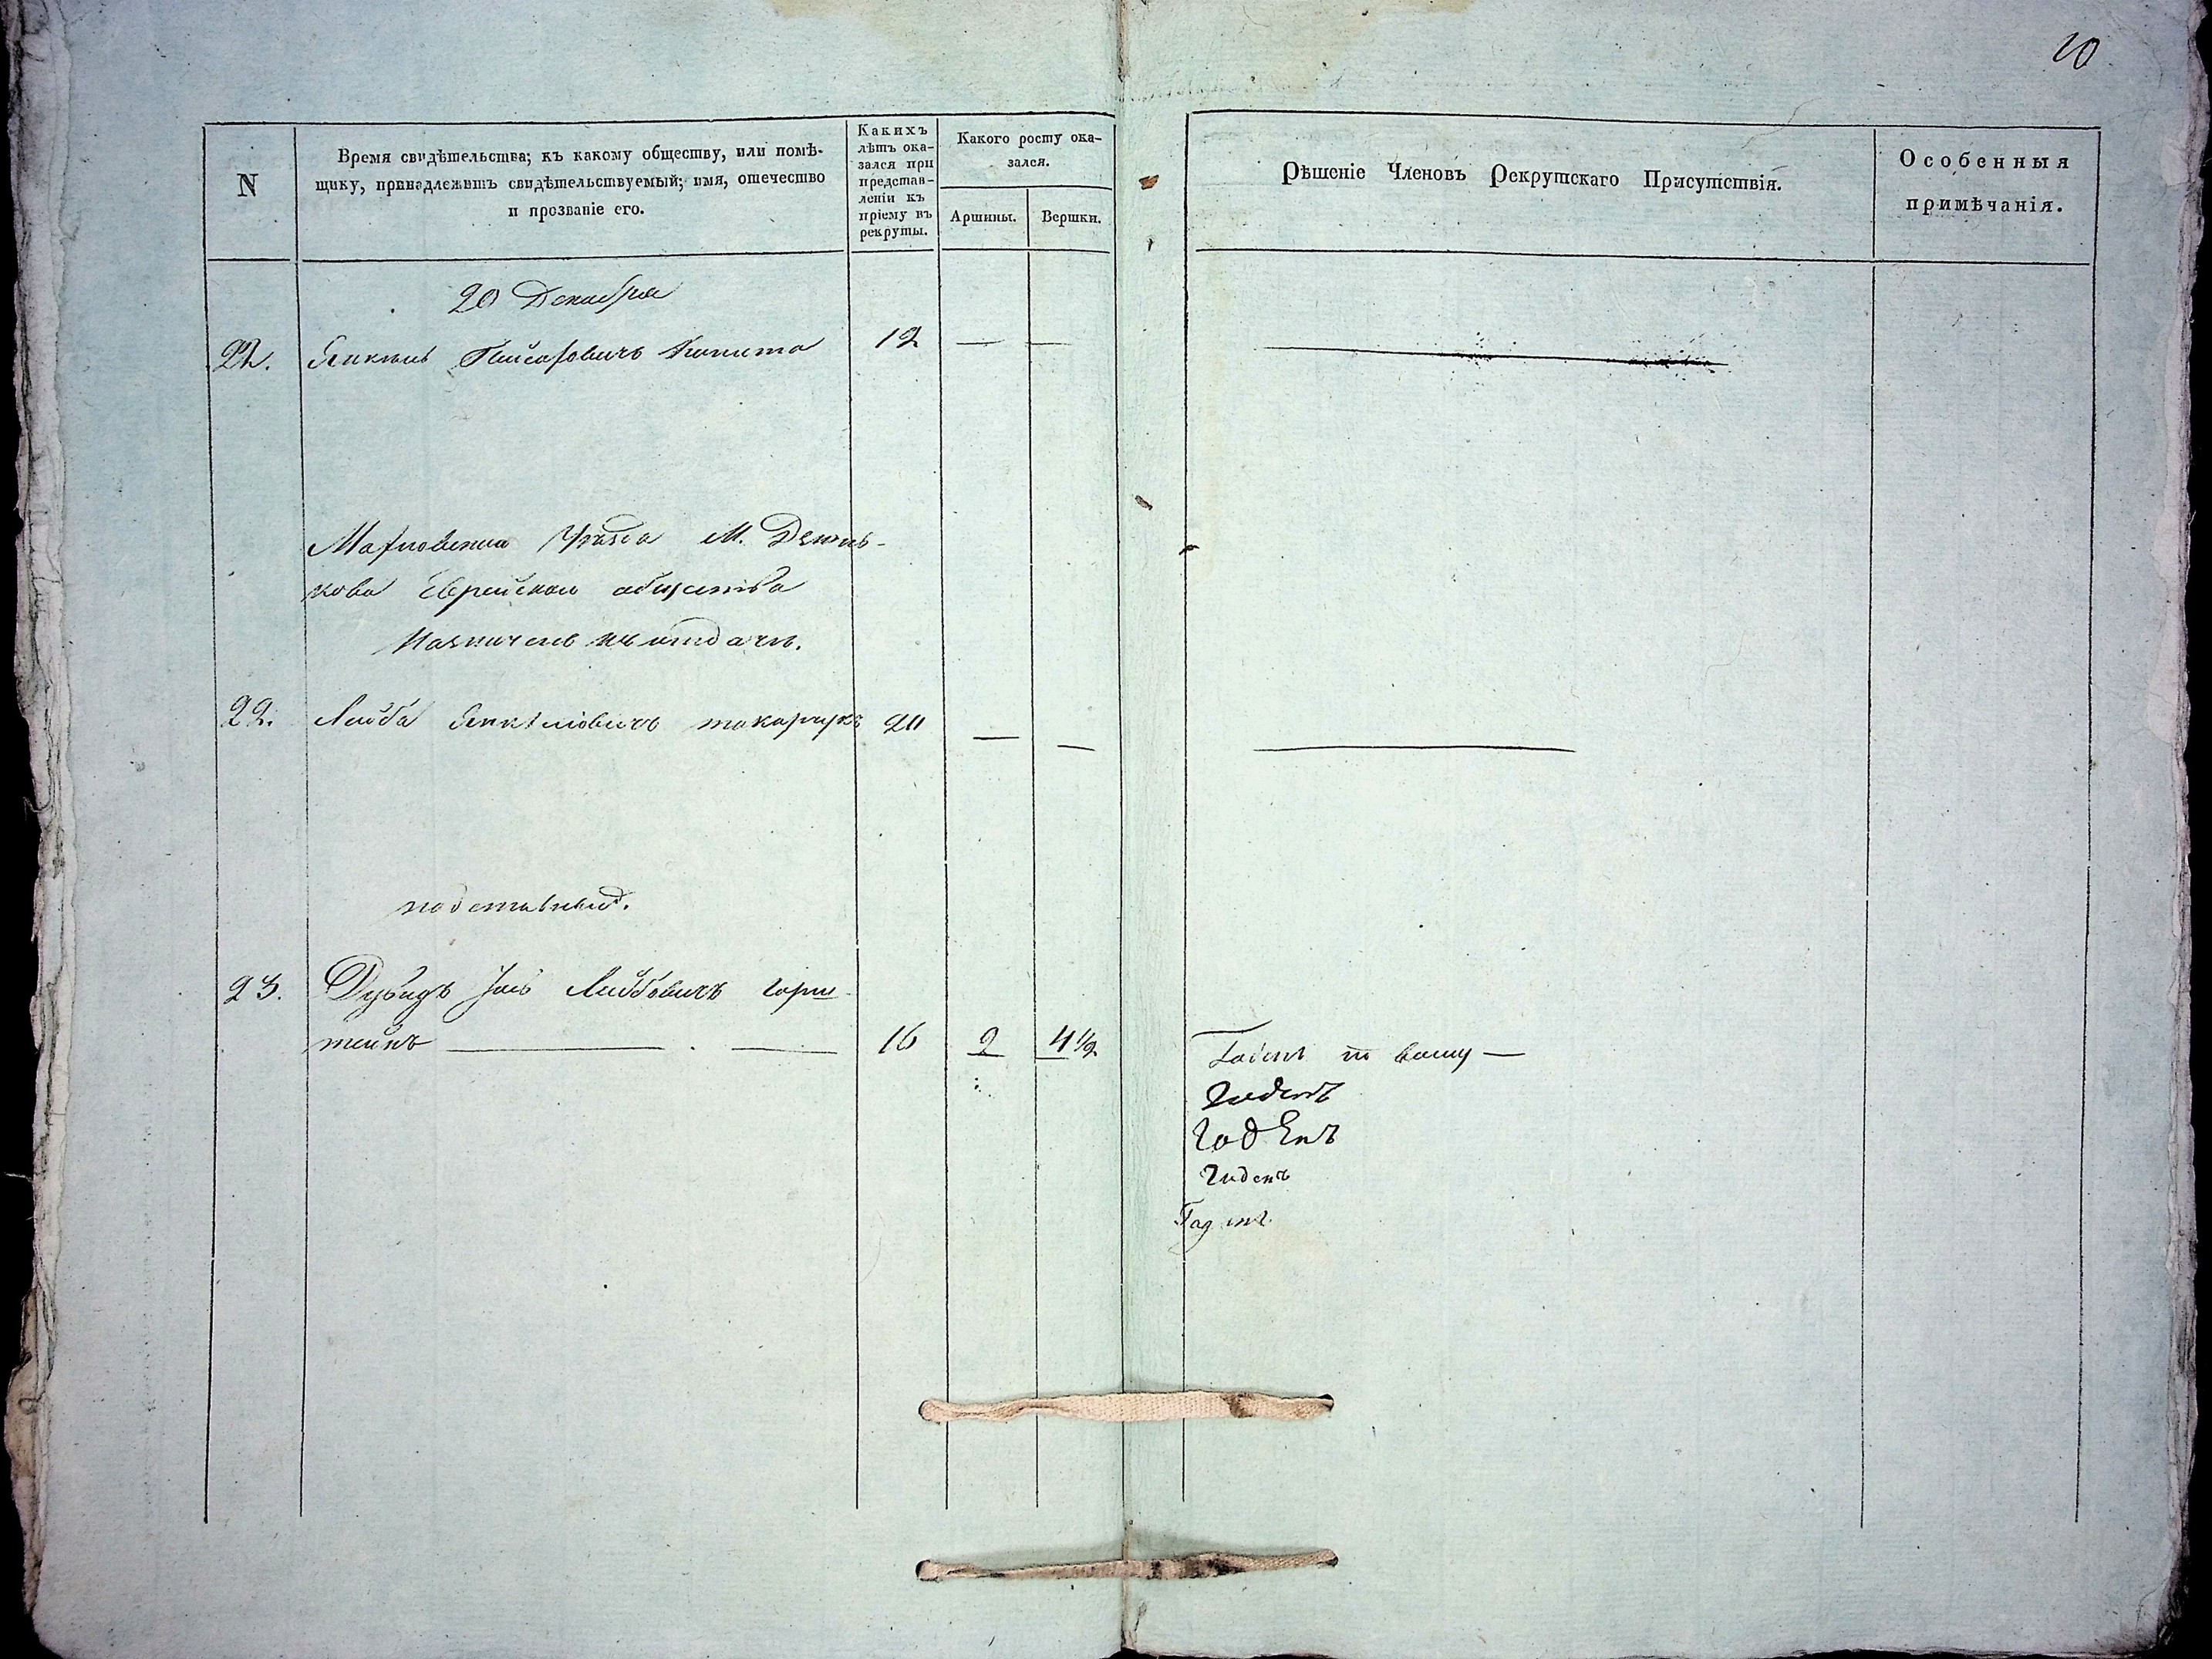 10
N
Время свидѣтельства; къ какому обществу, или помѣ-
щику, принадлежитъ свидѣтельствуемый; имя, отечество
и прозваніе его.
Какихъ
лѣтъ ока-
зался при
представ-
леніи къ
пріему въ
рекруты.
Какого росту ока-
зался.
Аршины.
Вершки.
Рѣшеніе Членовъ Рекрутскаго Присутствія.
Особенныя
примѣчанія.
20 Декабря
Янкель Копита 12 — —
Уѣзда М.
кова Еврейскаго общества
Назначенъ къ отдачи.
22. Лейба Янкелiовичъ токарчукъ — —
подставный.
23. Дувидъ Лейбовичъ горш-
тейнъ 16 2 4 1/2 Годенъ
годенъ
годЕнъ
годенъ
Годенъ